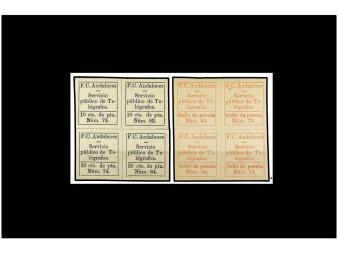 F.C. Andaluces
Servicio
público de Te-
légrafos.
10 cts. de pta.
Núm. 73.
F.C. Andaluces
Servicio
público de Te-
légrafos.
10 cts. de pta.
Núm. 83.
F.C. Andaluces
Servicio
público de Te-
légrafos.
10 cts. de pta.
Núm. 74.
F.C. Andaluces
Servicio
público de Te-
légrafos.
10 cts. de pta.
Núm. 84.
F.C. Andaluces
Servicio
público de Te-
légrafos.
Sello de peseta
Núm. 83.
F.C. Andaluces
Servicio
público de Te-
légrafos.
Sello de peseta
Núm. 73.
F.C. Andaluces
Servicio
público de Te-
légrafos.
Sello de peseta
Núm. 84.
F.C. Andaluces
Servicio
público de Te-
légrafos.
Sello de peseta
Núm. 74.